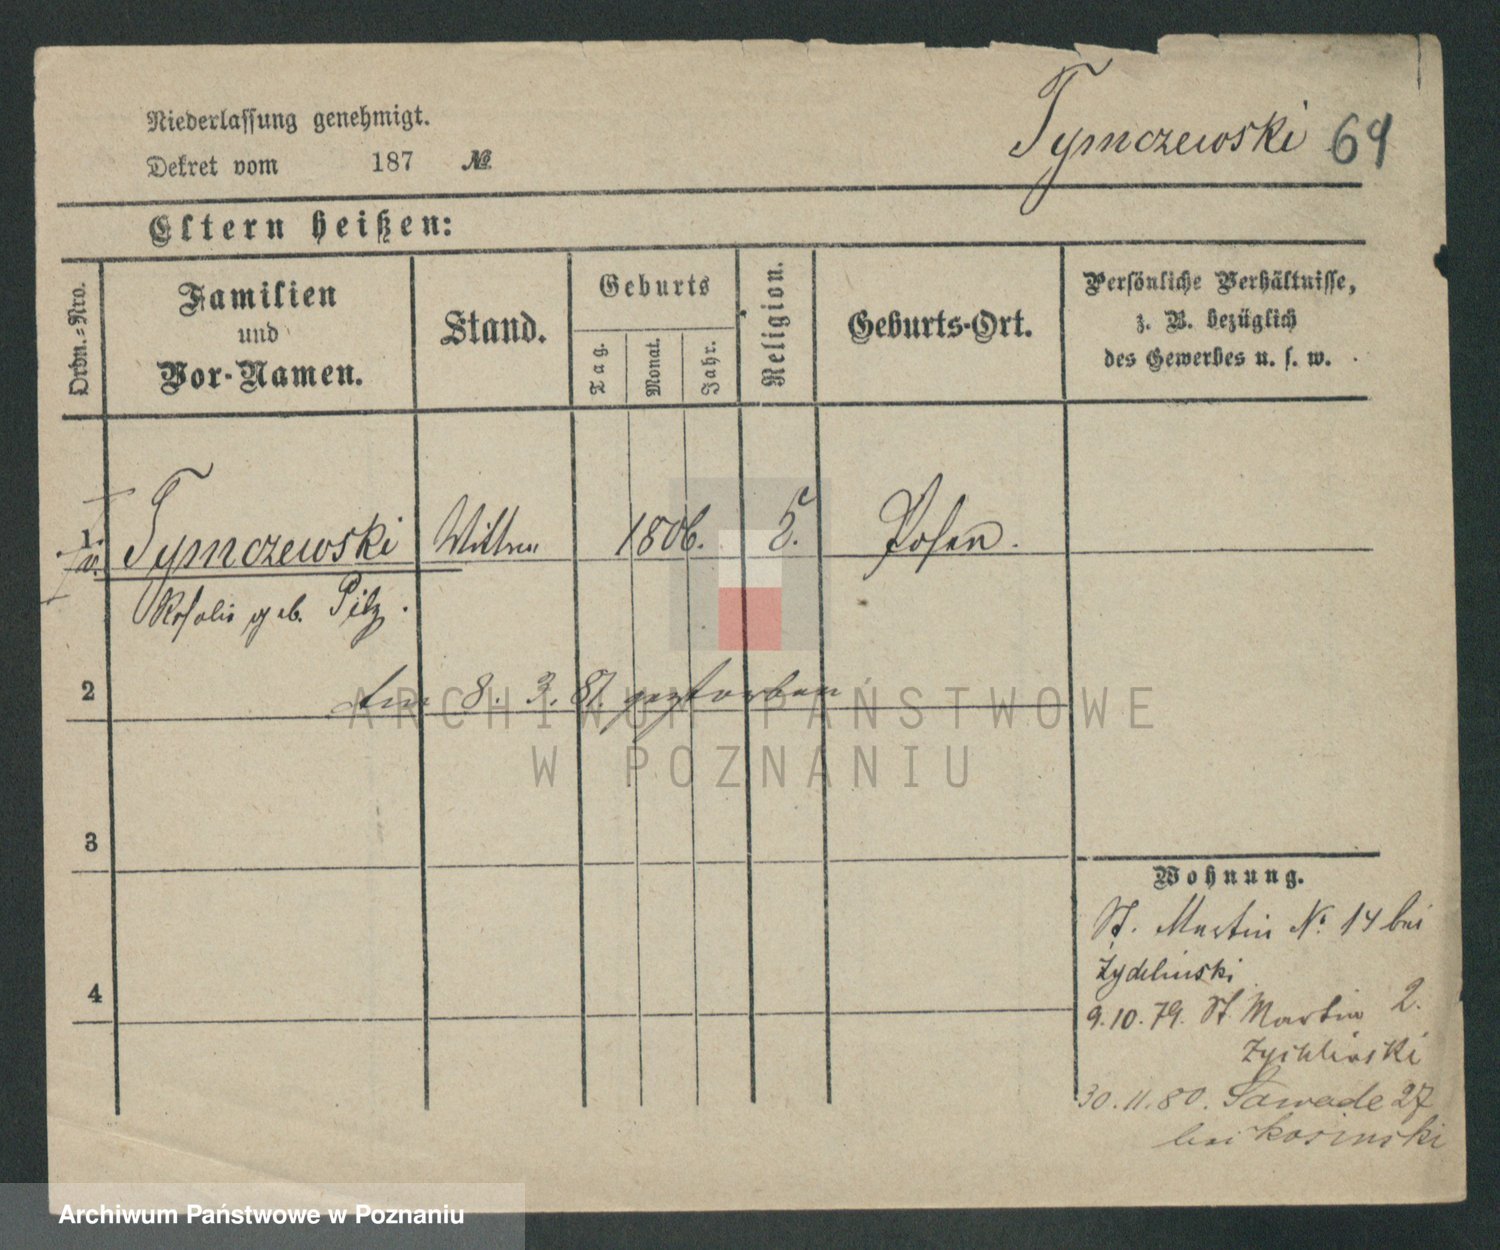 Niederlassung genehmigt.
Dekret vom 187 №
Tymczewski 64
Eltern heißen:
Ordn.-Nro.
Familien
und
Vor-Namen.
Stand.
Geburts
Tag.
Monat.
Jahr.
Religion.
Geburts-Ort.
Persönliche Verhältnisse,
z. B. bezüglich
des Gewerbes u. s. w.
1. Tymczewski Wittwe 1806. Posen.
Rosalie geb. Pilz.
2 Am 8. 3. 81. gestorben
3
4
Wohnung.
St. Martin N: 14 bei
Zychlinski
9.10.79. St. Martin 2.
Zychlinski
30.11.80. Sawade 27
bei Kosinski
ARCHIWUM PAŃSTWOWE
W POZNANIU
Archiwum Państwowe w Poznaniu